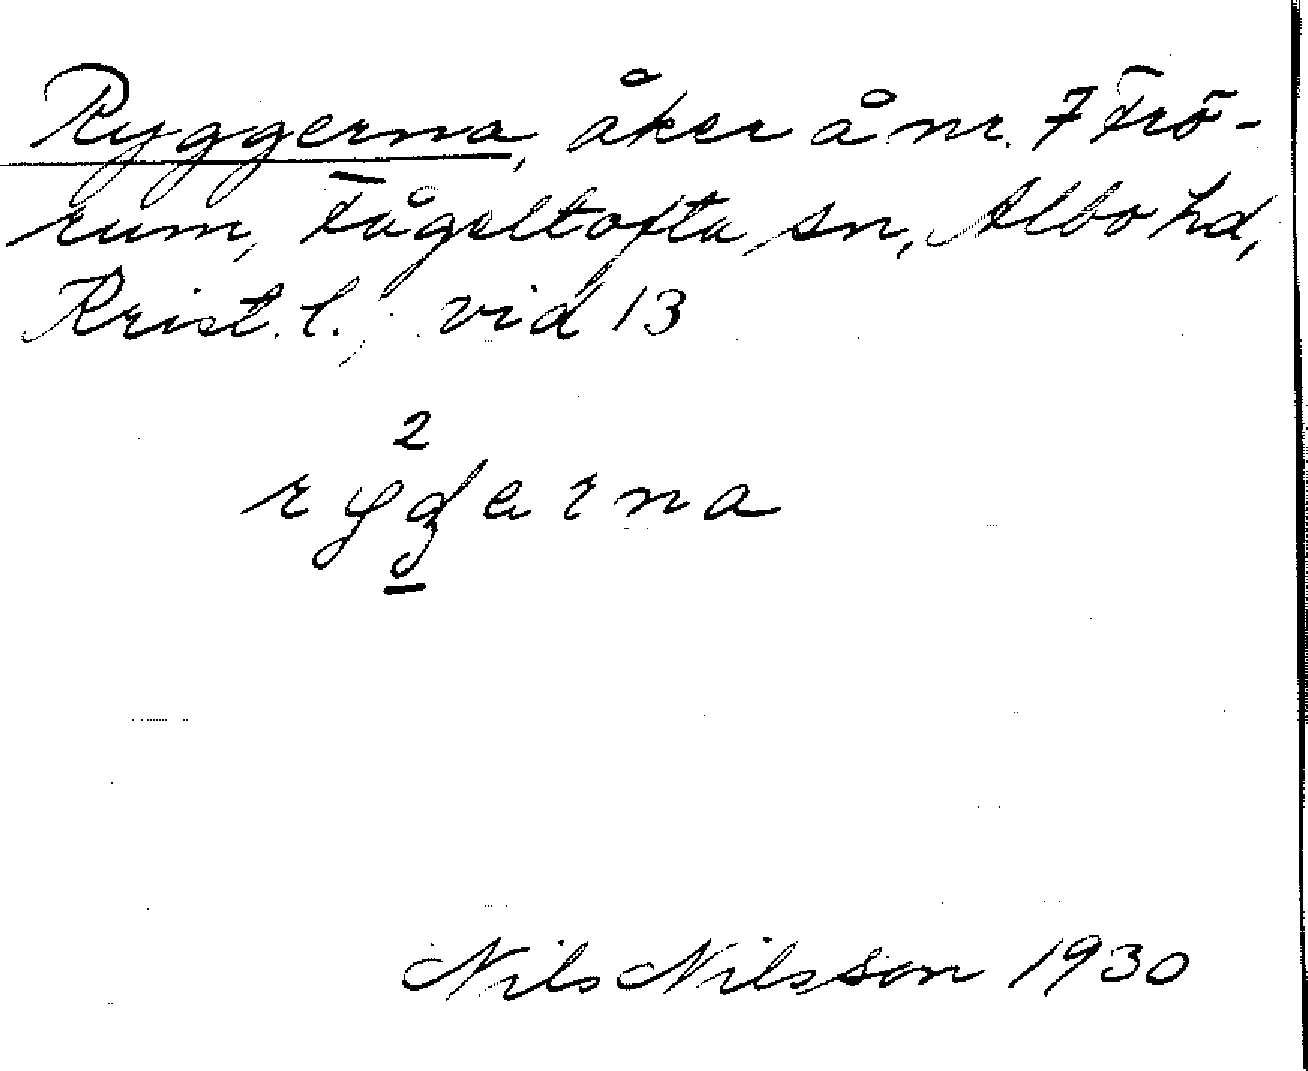 Ryggerna, åker å nr. 7 Frö-
rum, Fågeltofta sn, Albo hd,
Krist. l., vid 13
2
rygerna
Nils Nilsson 1930